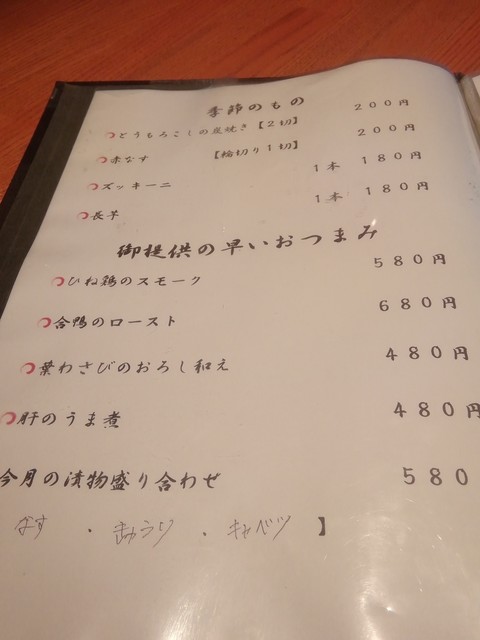 季節のもの
とうもろこしの炭焼き【2切】 200円
赤なす 【輪切り1切】 200円
ズッキーニ 1本 180円
長芋 1本 180円
御提供の早いおつまみ
ひね鶏のスモーク 580円
合鴨のロースト 680円
葉わさびのおろし和え 480円
肝のうま煮 480円
今月の漬物盛り合わせ 580
なす ・ きゅうり ・ キャベツ 】